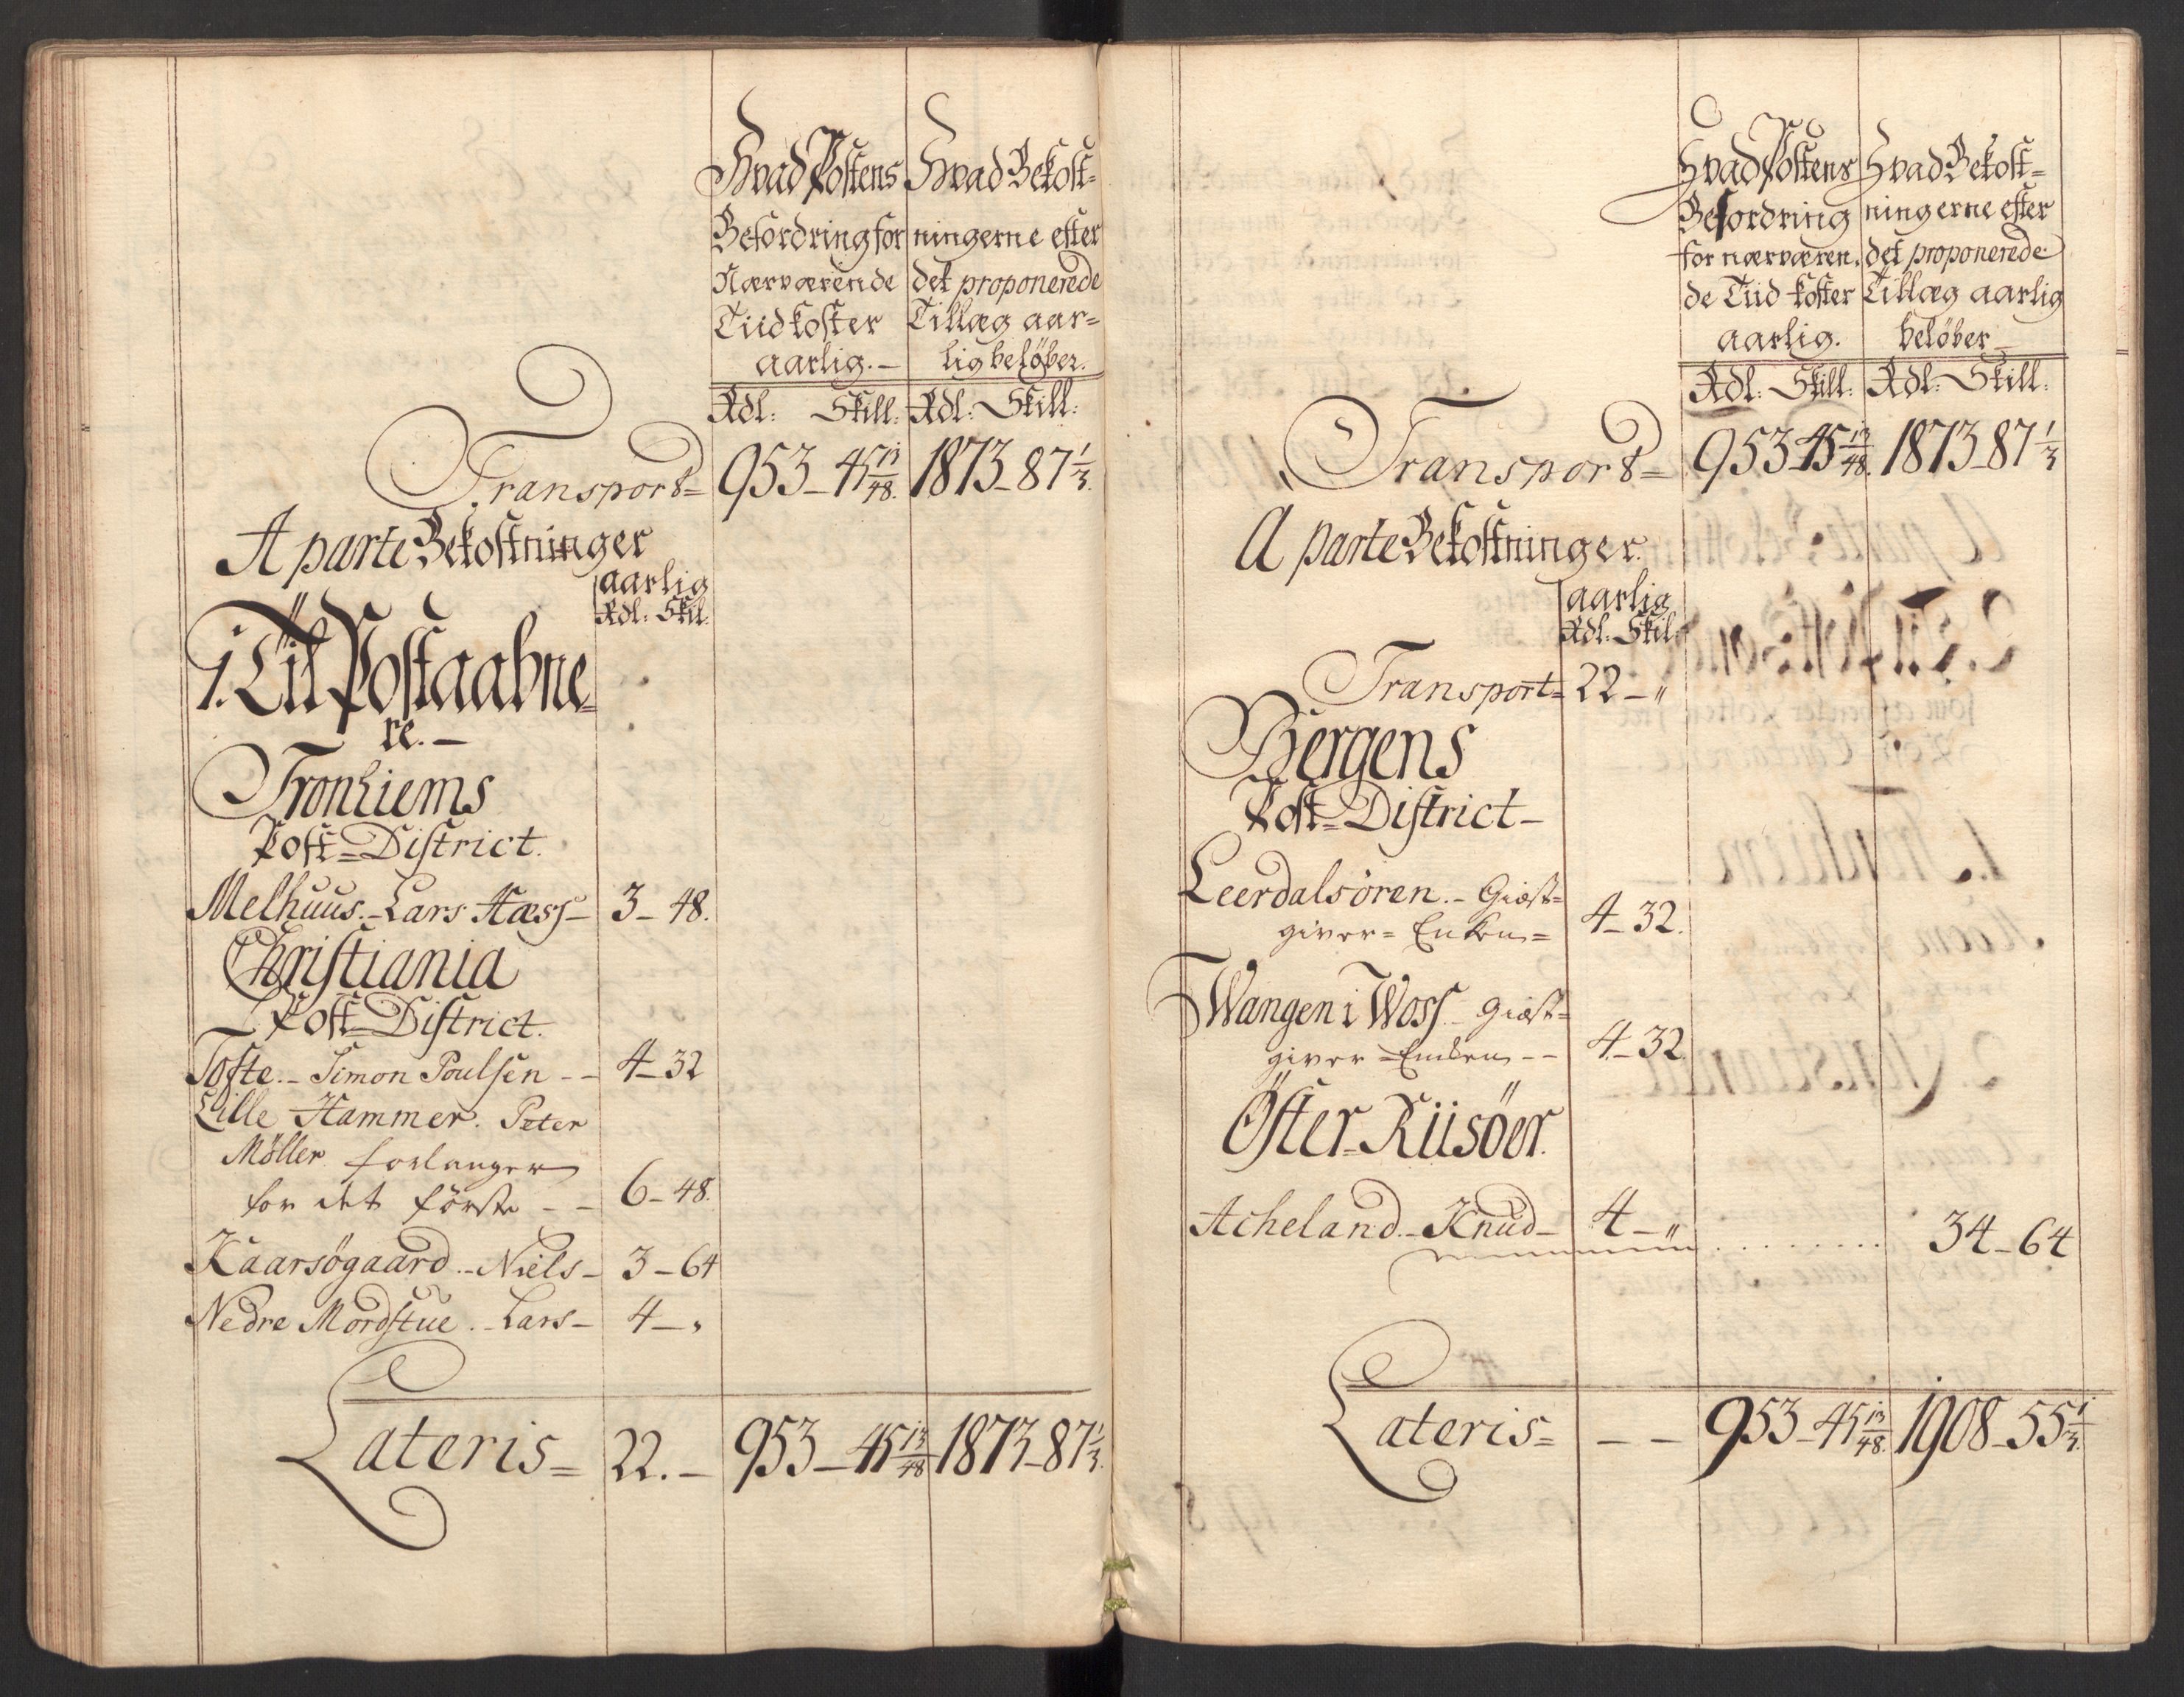 Hvad Postens
Befordring for
Nærværende
Tiid koster
aarlig.–
Hvad Bekost-
ningerne efter
det proponerede
Tillæg aar-
lig beløber.
Rdl: Skill: Rdl: Skill:
Transport= 953–45 13/48. 1873–87 1/3.
A parte Bekostninger
aarlig
Rdl: Skil:
1. Til Postaabne=
re.–
Tronhiems
Post=District.
Melhuus.–Lars Næss– 3–48.
Christiania
Post=District.
Tofte.–Simon Poulsen – – 4–32
Lille Hammer. Peter
Møller forlanger
for det første – – 6–48.
Kaarsøgaard.–Niels– 3–64
Nedre Mordstue.–Lars– 4–„
Lateris= 22.– 953–45 13/48 1873–87 1/3.
Hvad Postens
Befordring
for nærværen-
de Tiid koster
aarlig.
Hvad Bekost=
ningerne efter
det proponerede
Tillæg aarlig
beløber
Rdl: Skill: Rdl: Skill:
Transport= 953–45 13/48. 1873–87 1/3
A parte Bekostninger.
aarlig
Rdl: Skil:
Transport= 22–„
Bergens
Post=District–
Leerdalsøren.–Giæst=
giver=Enken= 4–32.
Wangen i Woss–Giæst=
giver=Enken – – 4–32.
Øster=Riisøer.
Acheland.–Knud– 4–„ 34–64
Lateris= – – 953–45 13/48. 1908–55 1/3.